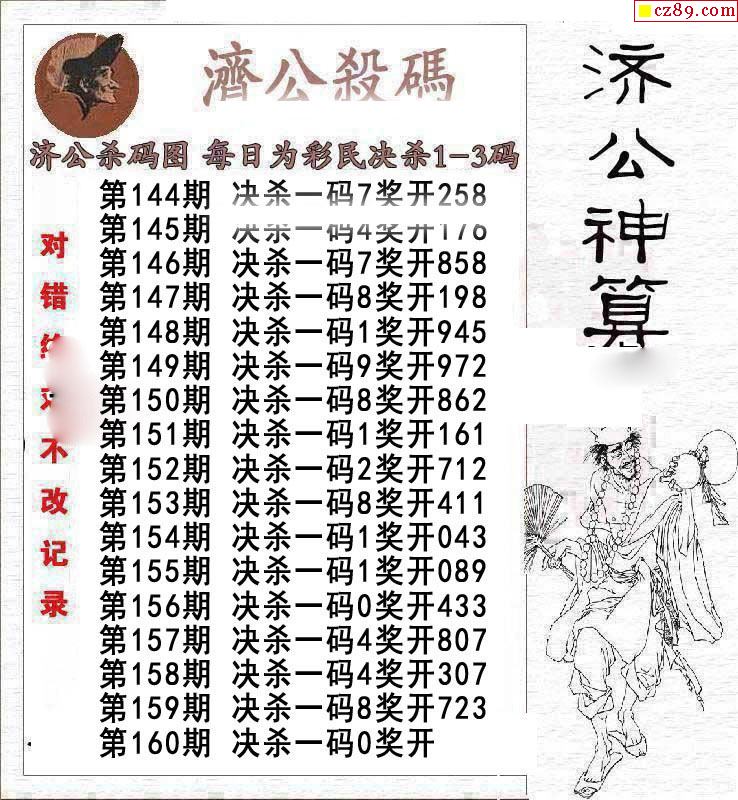 cz89.com
濟公殺碼
济公杀码图 每日为彩民决杀1-3码
第144期 决杀一码7奖开258
第145期 决杀一码4奖开176
第146期 决杀一码7奖开858
第147期 决杀一码8奖开198
第148期 决杀一码1奖开945
第149期 决杀一码9奖开972
第150期 决杀一码8奖开862
第151期 决杀一码1奖开161
第152期 决杀一码2奖开712
第153期 决杀一码8奖开411
第154期 决杀一码1奖开043
第155期 决杀一码1奖开089
第156期 决杀一码0奖开433
第157期 决杀一码4奖开807
第158期 决杀一码4奖开307
第159期 决杀一码8奖开723
第160期 决杀一码0奖开
对错不改记录
济公神算